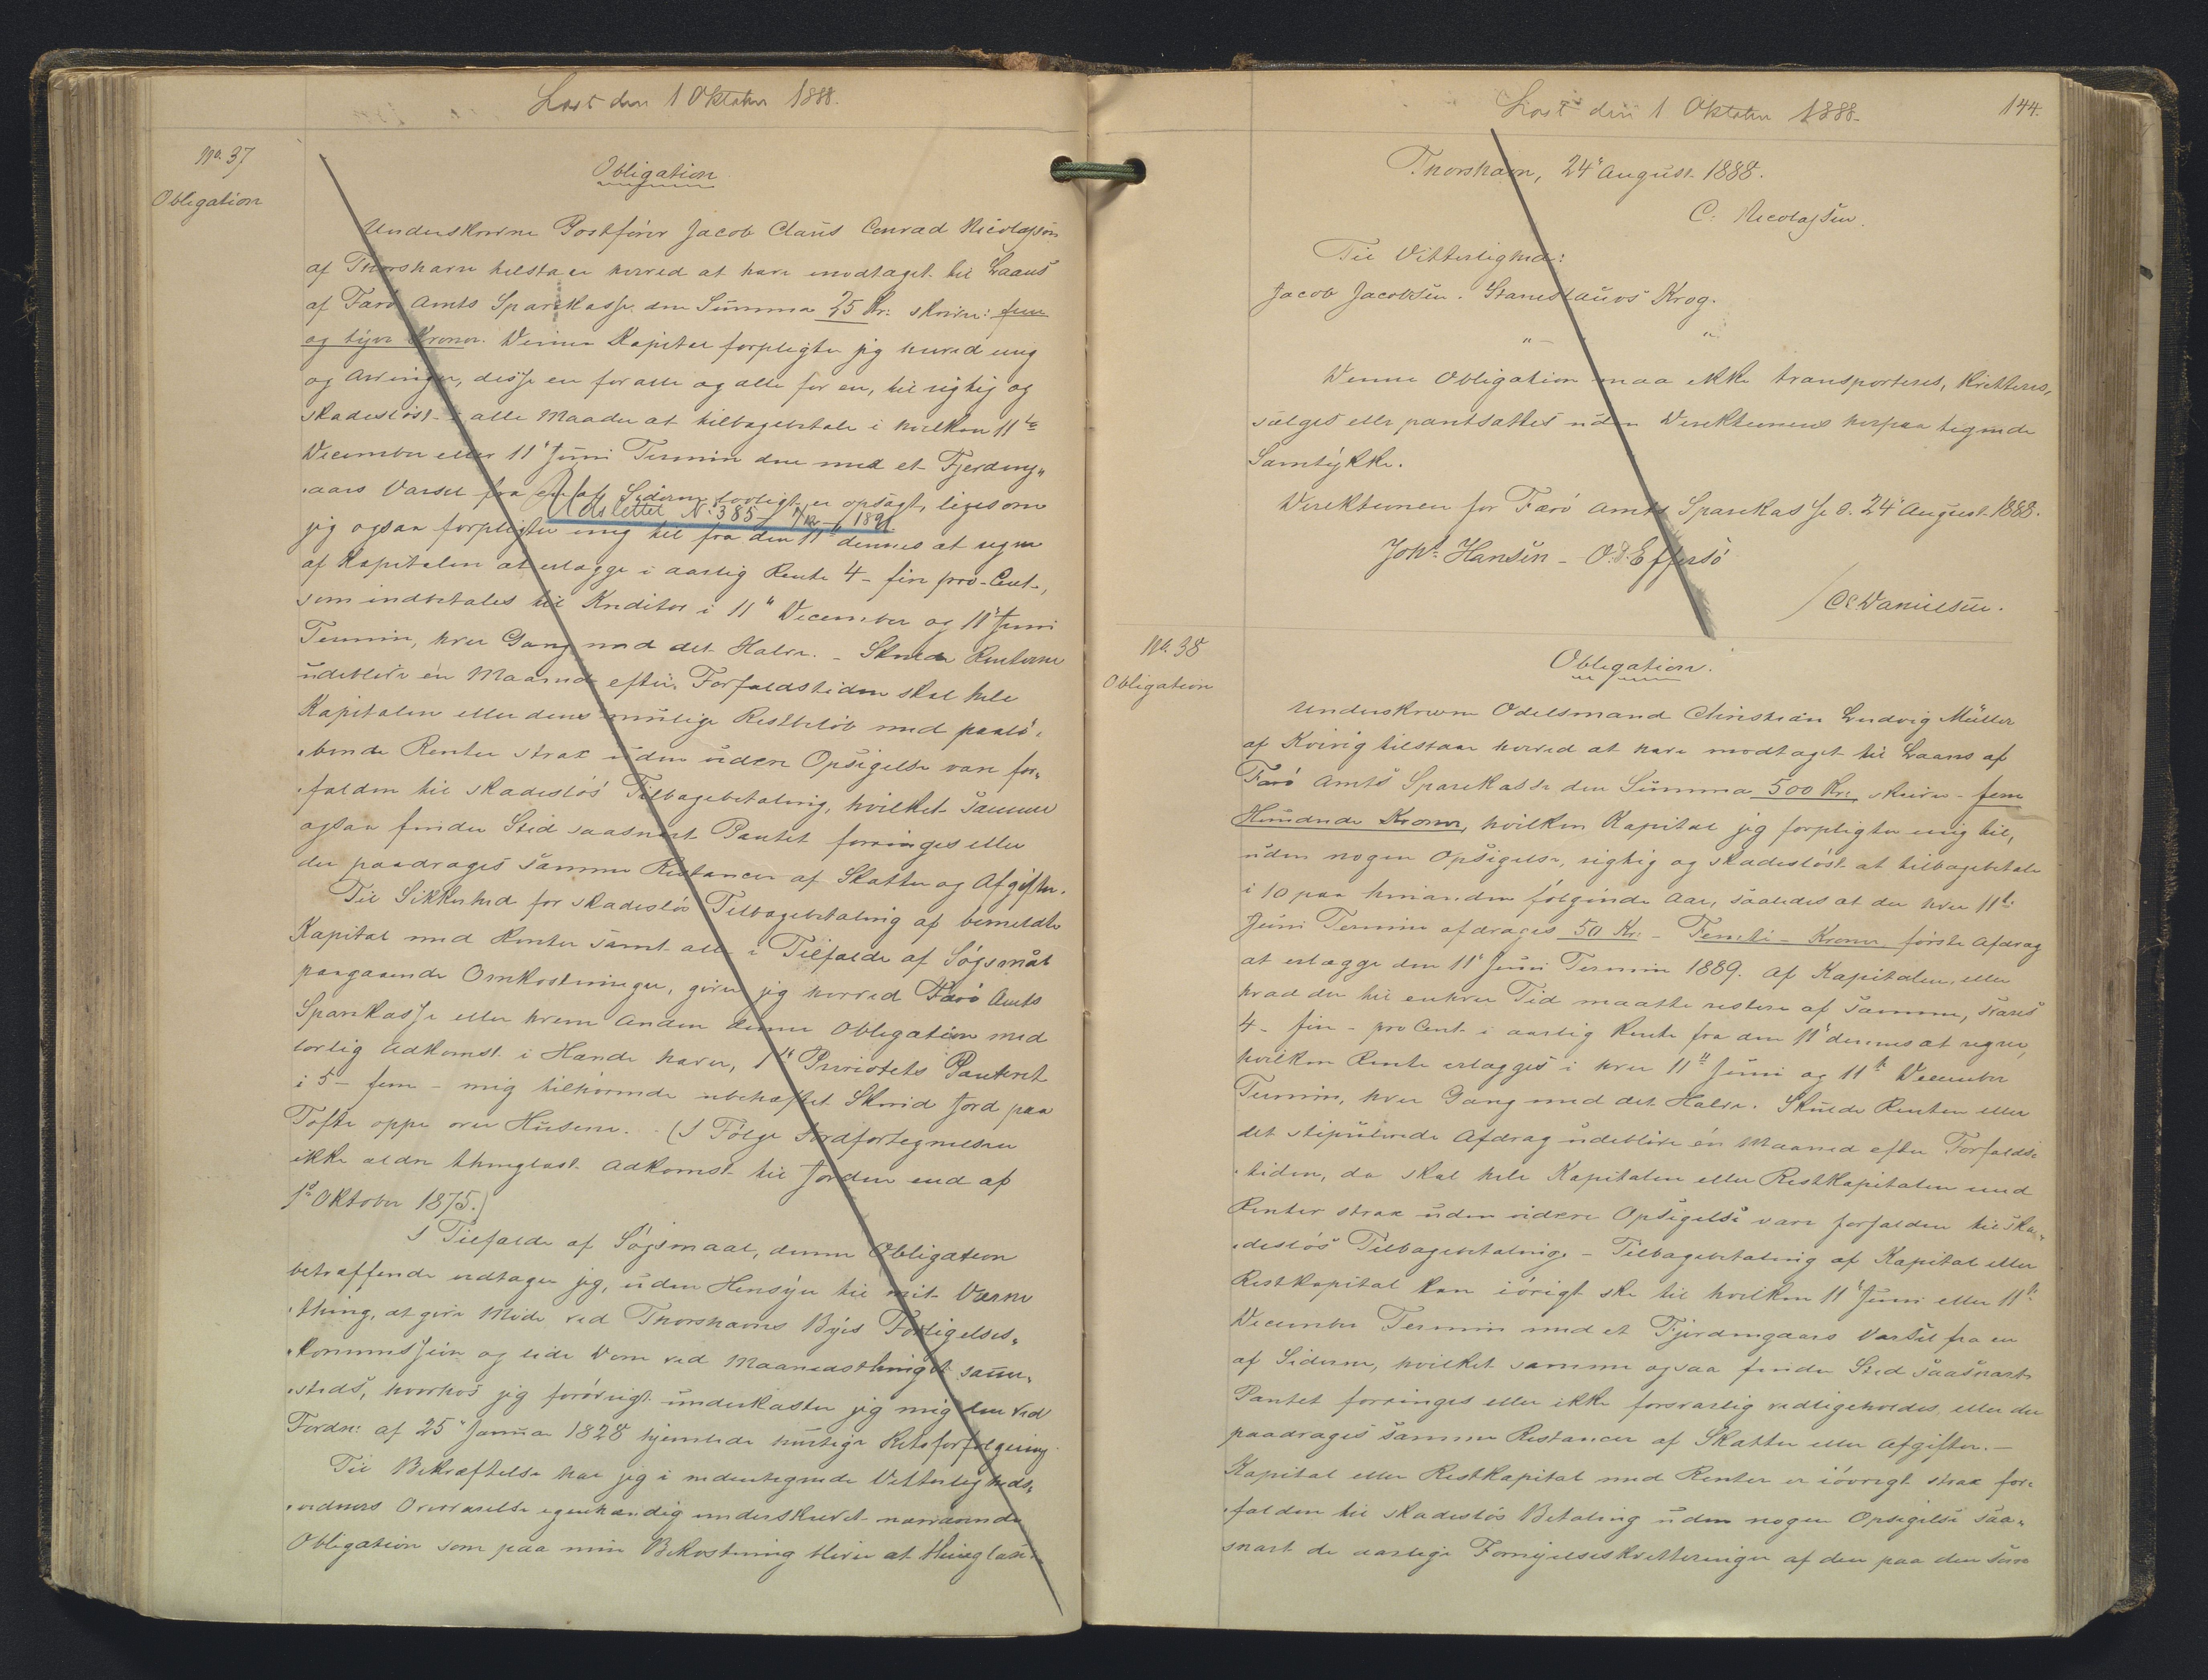 Læst den 1 Oktober 1888.
No. 37
Obligation
Obligation
Underskrevne Postfører Jacob Claus Conrad Nicolajsen
af Thorshavn tilstaaer herved at have modtaget til Laans
af Færø Amts Sparekasse den Summa 25 Kr: skriver: fem
og tyve Kroner. Denne Kapital forpligter jeg herved mig
og Arvinger, disse en for alle og alle for en, til rigtig og
skadesløst i alle Maader at tilbagebetale i hvilken 11te
December eller 11te Juni Termin den med et Fjerding„
„aars Varsel fra en af Siderne lovligt er opsagt, ligesom
Udslettet No: 385 - 11/12 - 1891.
jeg ogsaa forpligter mig til fra den 11te dennes at regne
af Kapitalen at erlægge i aarlig Rente 4 - fire pro-Cent,
som indbetales til Kreditor i 11te December og 11te Juni
Termin, hver Gang med det Halve. - Skulde Renterne
udeblive én Maaned efter Forfaldstiden skal hele
Kapitalen eller dens mulige Restbeløb med paalø„
„bende Renter strax uden videre Opsigelse være for„
„falden til skadesløs Tilbagebetaling, hvilket samme
ogsaa finder Sted saasnart Pantet forringes eller
der paadrages samme Restancer af Skatter og Afgifter.
Til Sikkerhed for skadesløs Tilbagebetaling af bemeldte
Kapital med Renter samt alle i Tilfælde af Søgsmål
paagaaende Omkostninger, giver jeg herved Færø Amts
Sparekasse eller hvem Anden denne Obligation med
lovlig Adkomst i Hænde haver, 1ste Prioritets Panteret
i 5 - fem - mig tilhørende ubehæftet Skind Jord paa
Tofte oppe over Husene. (I Følge Jordfortegnelsen
ikke ældre thinglæst Adkomst til Jorden end af
1ste Oktober 1875.)
I Tilfælde af Søgsmaal, denne Obligation
betræffende vedtager jeg, uden Hensyn til mit Værne
„thing, at give Møde ved Thorshavns Byes Forligelses„
„kommission og lide Dom ved Maanedsthinget samme„
„steds, hvorhos jeg forøvrigt underkaster jeg mig den ved
Fordn: af 25de Januar 1828 hjemlede hurtige Retsforfølgning.
Til Bekræftelse har jeg i nedentegnede Vitterligheds„
„vidners Overværelse egenhændig underskrevet nærværende
Obligation som paa min Bekostning bliver at thinglæse.
Læst den 1 Oktober 1888.
144.
Thorshavn, 24de August 1888.
C. Nicolajsen.
Til Vitterlighed:
Jacob Jacobsen. Stanislaus Krog.
„ „
Denne Obligation maa ikke transporteres, kvitteres,
sælges eller pantsættes uden Direktionens herpaa tegnede
Samtykke.
Direktionen for Færø Amts Sparekasse d. 24de August 1888.
Johs Hansen - O. Effersø
/ Danielsen.
No. 38
Obligation
Obligation.
Underskrevne Odelsmand Christian Ludvig Müller
af Kvivig tilstaar herved at have modtaget til Laans af
Færø Amts Sparekasse den Summa 500 Kr: skriver - fem
Hundrede Kroner, hvilken Kapital jeg forpligter mig til,
uden nogen Opsigelse, rigtig og skadesløst at tilbagebetale
i 10 paa hinanden følgende Aar, saaledes at der hver 11te
Juni Termin afdrages 50 Kr: - Femti - Kroner første Afdrag
at erlægge den 11te Juni Termin 1889. Af Kapitalen, eller
hvad der til enhver Tid maatte restere af samme, svares
4 - fire - pro Cent i aarlig Rente fra den 11te dennes at regne,
hvilken Rente erlægges i hver 11te Juni og 11te December
Termin, hver Gang med det Halve. Skulde Renten eller
det stipulerede Afdrag udeblive én Maaned efter Forfalds„
„tiden, da skal hele Kapitalen eller Restkapitalen med
Renter strax uden videre Opsigelse være forfalden til ska„
„desløs Tilbagebetaling. - Tilbagebetaling af Kapital eller
Restkapital kan iøvrigt ske til hvilken 11te Juni eller 11te
December Termin med et Fjerdingaars Varsel fra en
af Siderne, hvilket samme ogsaa finder Sted saasnart
Pantet forringes eller ikke forsvarlig vedligeholdes eller der
paadrages samme Restancer af Skatter eller Afgifter. -
Kapital eller Restkapital med Renter er iøvrigt strax for„
„falden til skadesløs Betaling uden nogen Opsigelse saa„
snart de aarlige Fornyelseskvitteringer af den paa den